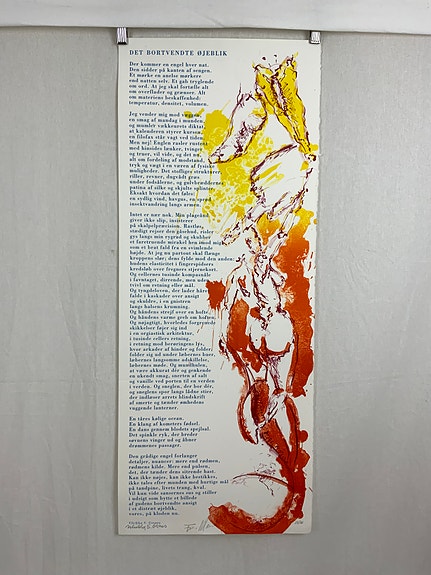 DET BORTVENDTE ØJEBLIK
Der kommer en engel hver nat.
Den sidder på kanten af sengen.
Et mørke en anelse mørkere
end natten selv. Et gab tryglende
om ord. At jeg skal fortælle alt
om overflader og grænser. Alt
om materiens beskaffenhed:
temperatur, densitet, volumen.
Jeg vender mig mod væggen,
en smag af mandag i munden,
og mumler vækkeurets diktat,
at kalenderen styrer kursen,
en filofax står vagt ved tiden.
Men nej! Englen rasler rustent
med hinsides lænker, tvinger
og truer, vil vide, og det nu,
alt om fordeling af modstand,
tryk og vægt i en væren af fysiske
muligheder. Det stofliges strukturer,
riller, revner, dugvådt græs
under fodsålerne, og gulvbræddernes
patina af silke og skjulte splinter.
Eksakt hvordan det føles:
en sydlig vind, havgus, en spred
insektvandring langs armen.
Intet er nær nok. Min plageånd
giver ikke slip, insisterer
på skalpelpræcision. Rastløs,
stændigt rejser den gåsehud, risler
gys langs min rygrad og skubber
et førstruende mirakel hen imod mig
som et brat fald fra en svimlende
højde. At jeg nu partout skal flænge
kroppens slør; dens fylde mod den anden:
hudens elasticitet i fingerspidsers
kredsløb over fregners stjernekort.
Og cellernes tusinde kompasnåle
i favntaget, dirrende, men uden
tvivl om retning eller mål.
Og tyngdeloven, der lader håret
falde i kaskader over ansigt
og skuldre, i en gnistren
langs halsens krumning.
Og håndens strejf over en hofte,
Og håndens varme greb om hoften.
Og nøjagtigt, hvorledes forgrenede
skikkelser føjer sig ind
i en orgiastisk arkitektur,
i tusinde cellers retning,
i retning mod berøringens lys,
hvor arkader af hinder og folder
folder sig ud under læbernes buer,
læbernes langsomme udskillelse,
læbernes møde. Og mundhulen,
at være akkurat dér og genkende
en ukendt smag, snerten af salt
og vanille ved porten til en verden
i verden. Og sneglen, der bor dér,
og sneglens spor langs lådne stier,
der indfører årets blindskrift
af smerte og tænder ømhedens
vuggende lanterner.
En tåres kølige ocean.
En klang af kometers fødsel.
En dans gennem blodets spejlsal.
Det spinkle ryk, der breder
søvnens vinger ud og åbner
drømmenes passager.
Den grådige engel forlanger
detaljer, nuancer: mere end rødmen,
rødmens kilde. Mere end pulsen,
det, der tænder dens sitrende hast.
Kan ikke nøjes, kan ikke bestikkes,
ikke tales efter munden med hurtige mål
på tandpine, livets trang, kval.
Vil kun vide sansernes sus og stiller
i udsigt som bytte et billede
af gudens bortvendte ansigt
i et distent øjeblik,
vores, på kloden nu.